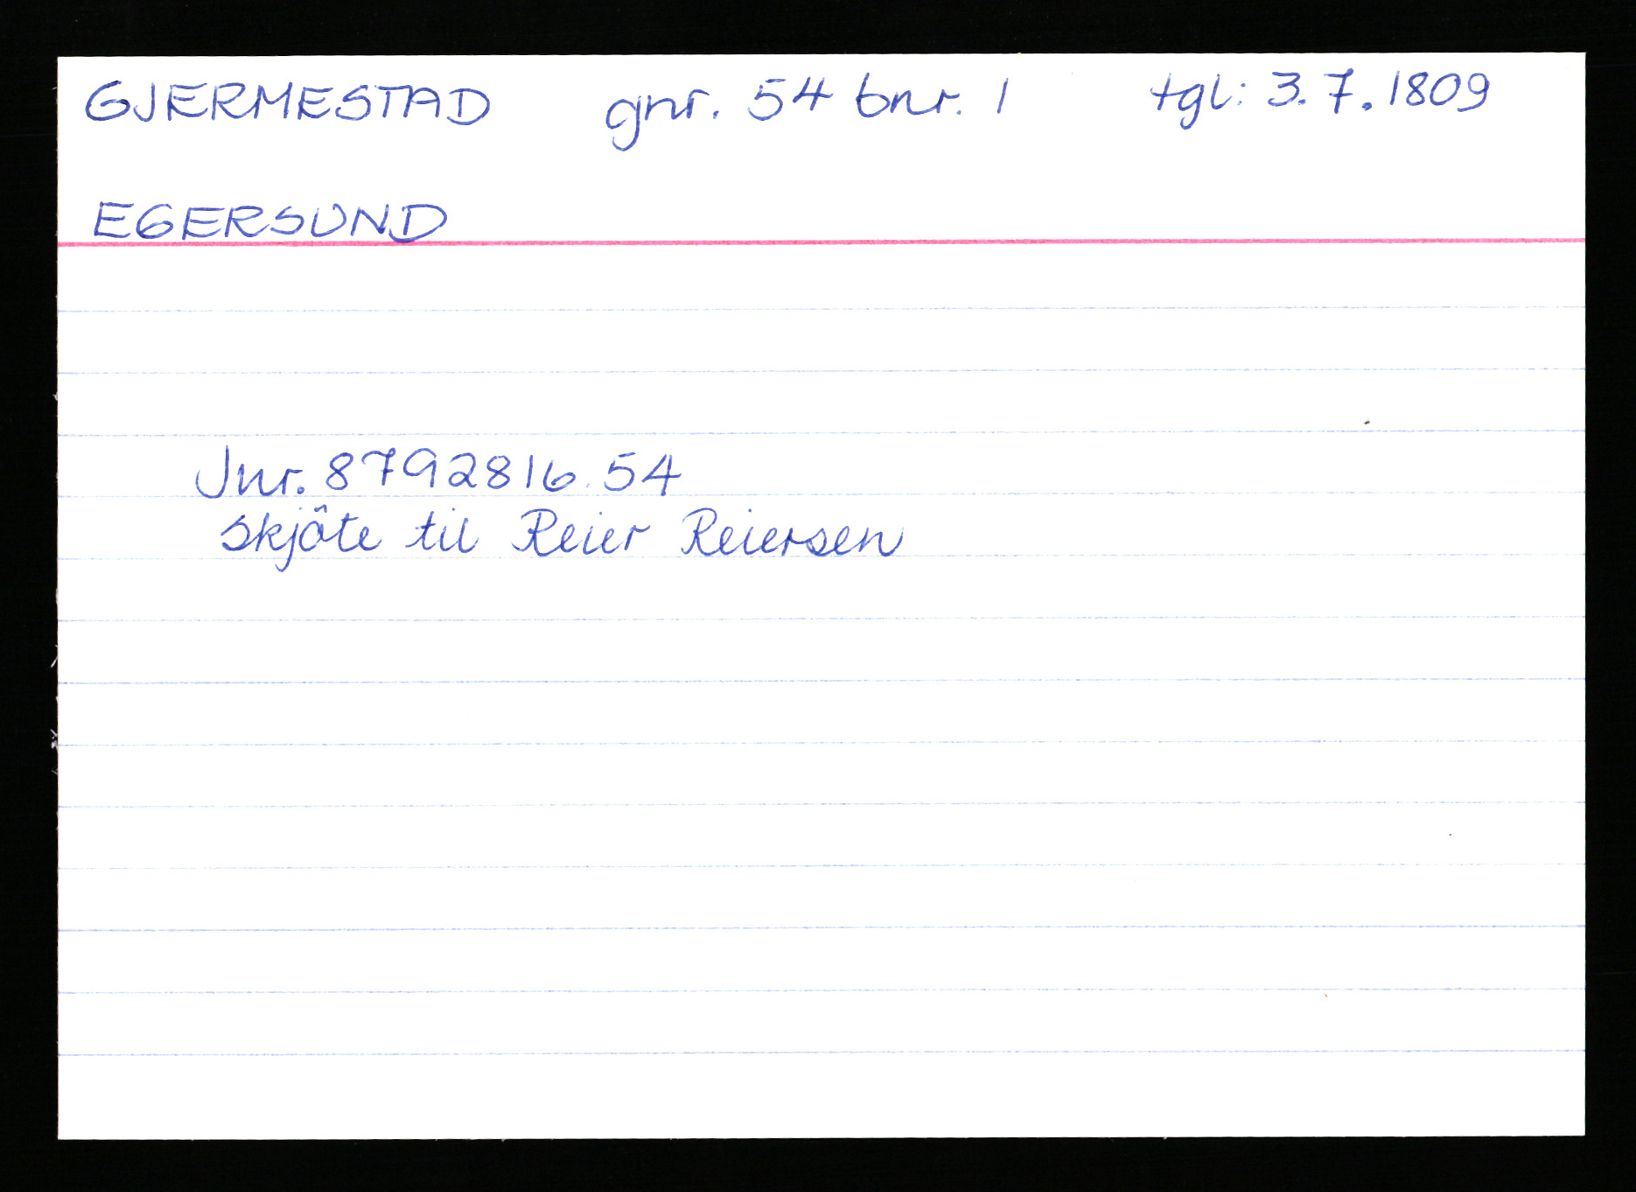 GJERMESTAD gnr. 54 bnr. 1 tgl: 3.7.1809
EGERSUND
Jnr. 8792816.54
Skjôte til Reier Reiersen